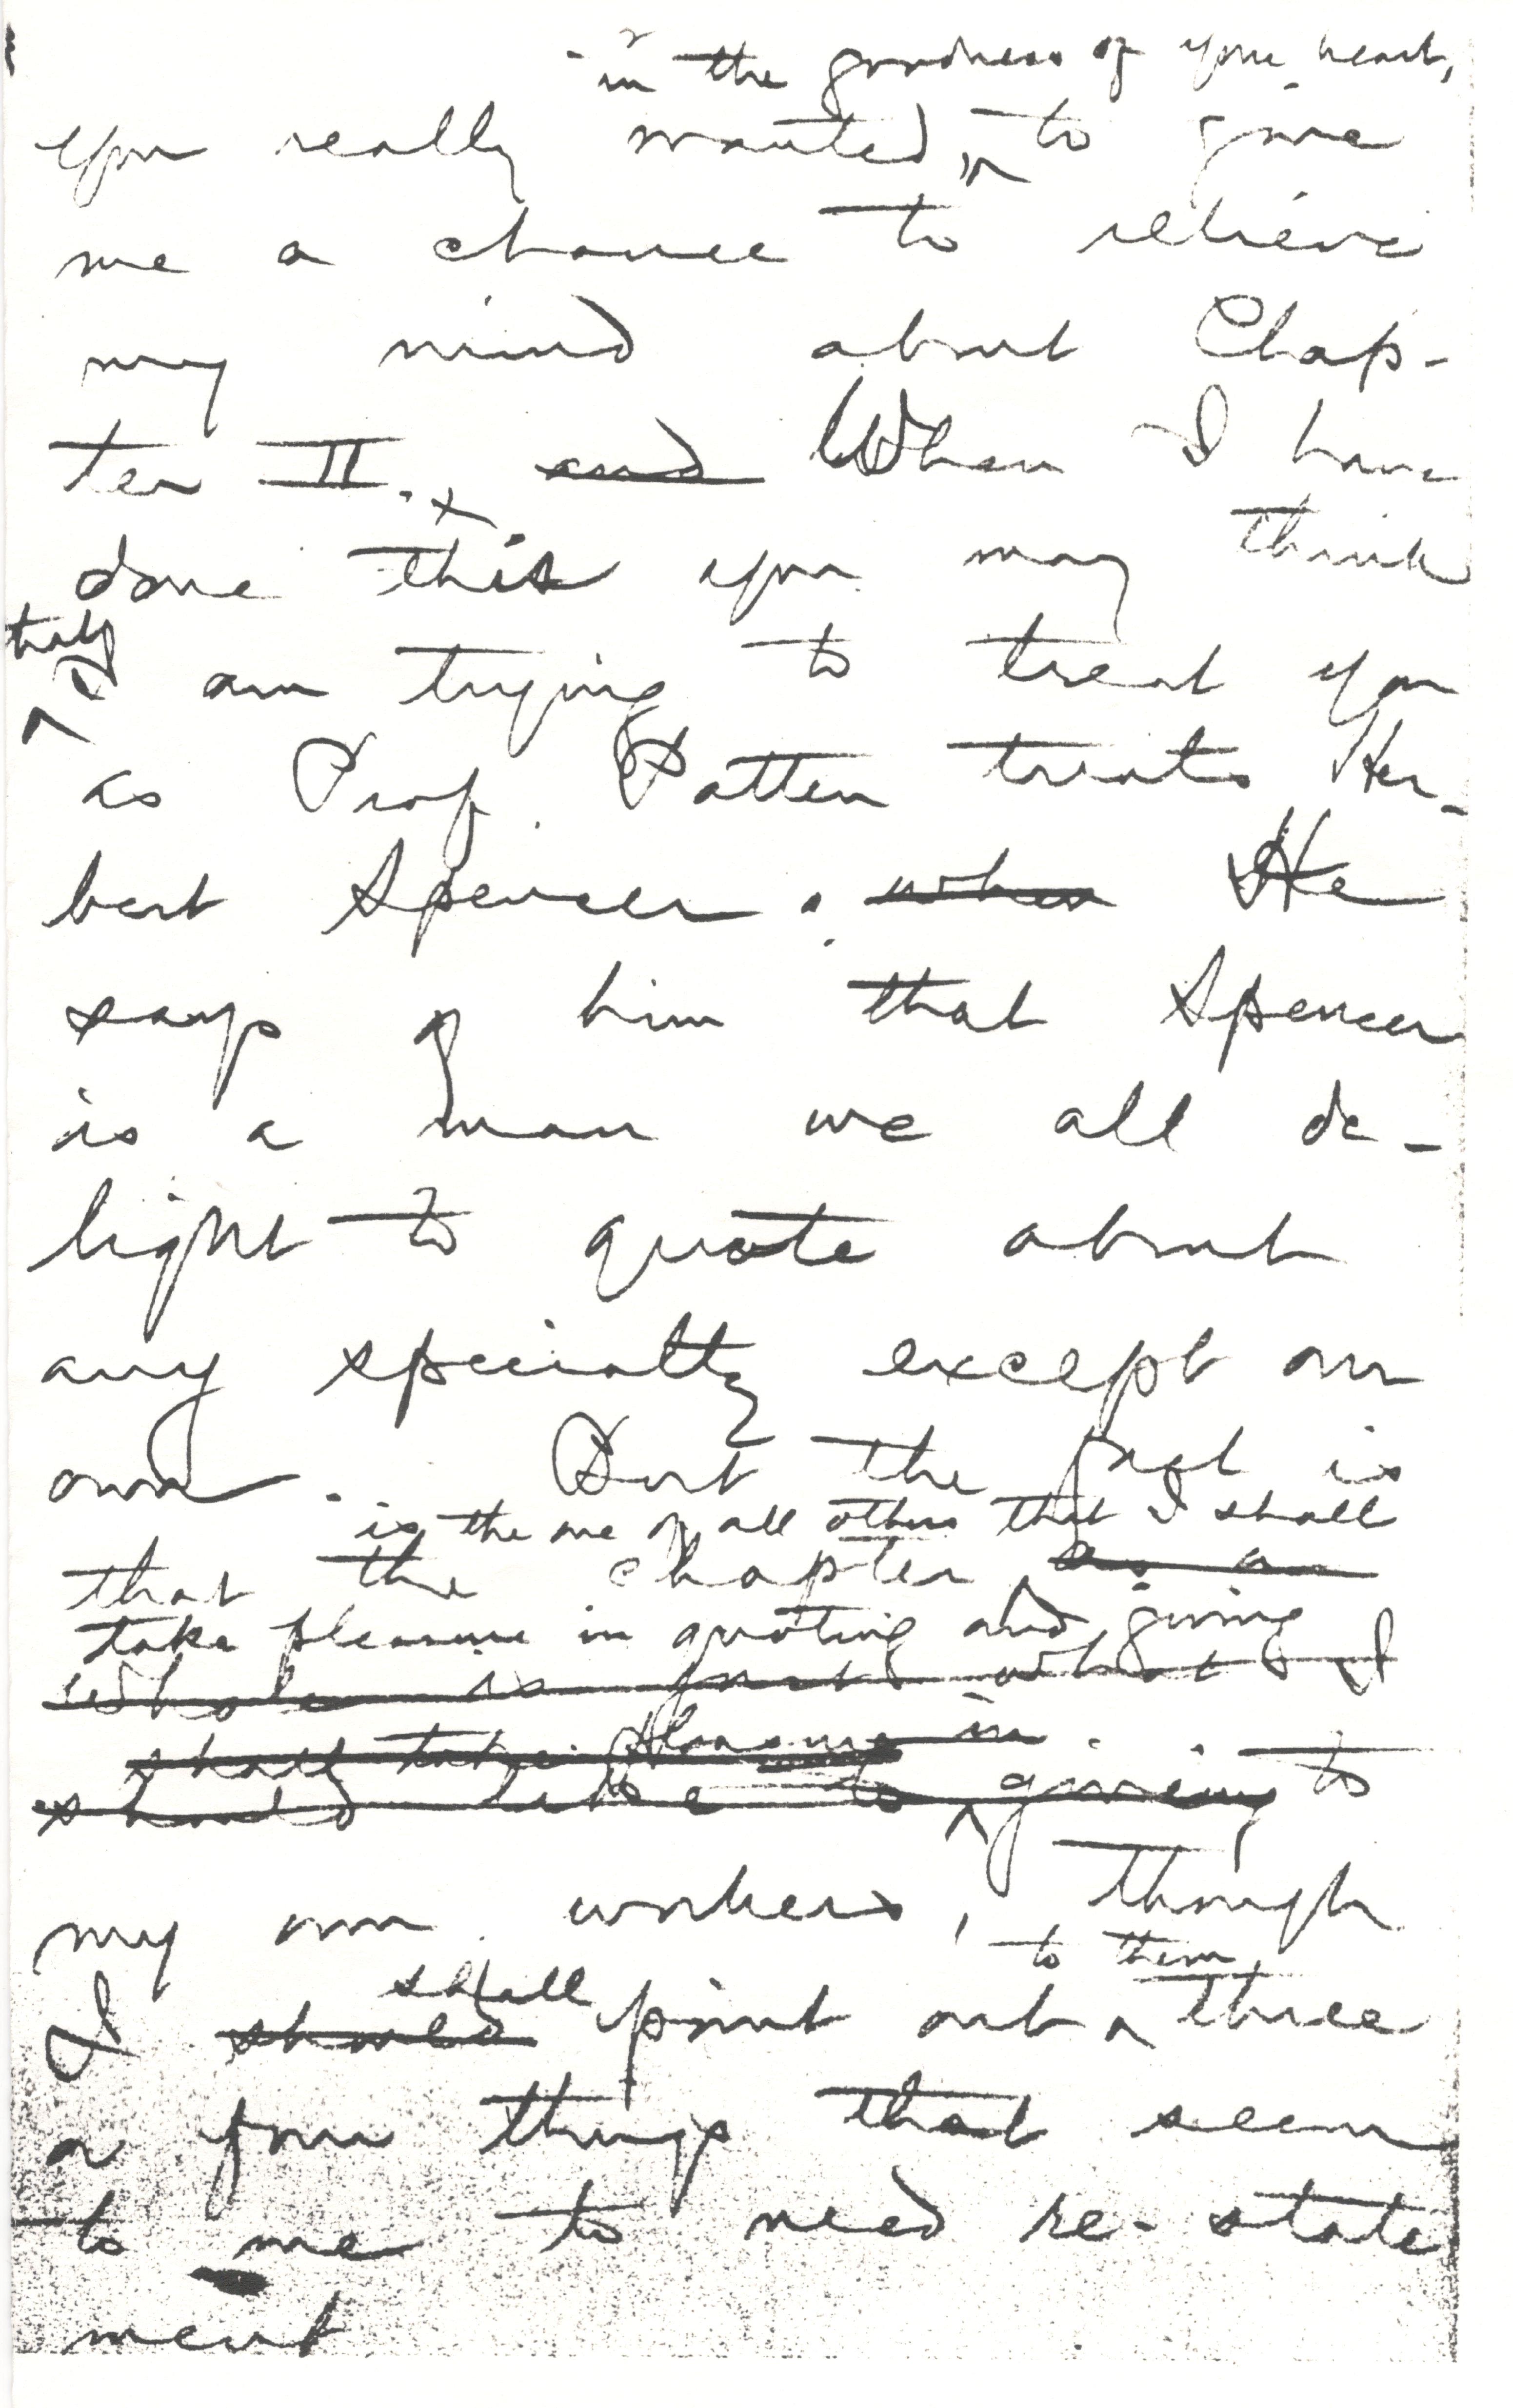 in the goodness of your heart,
you really wanted to give
me a chance to relieve
my mind about Chap-
ter II. and When I have
done this you may think
that
I am trying to treat you
as Prof. Patten treats Her-
bert Spencer. when He
says of him that Spencer
is a man we all de-
light to quote about
any specialty except our
own. But the fact is
is the one of all others that I shall
that the chapter as a
take pleasure in quoting and giving
whole is just what I
shall take pleasure in
should like to giving to
my own workers, though
to them
shall
I should point out three
or four things that seem
to me to need re-state
ment